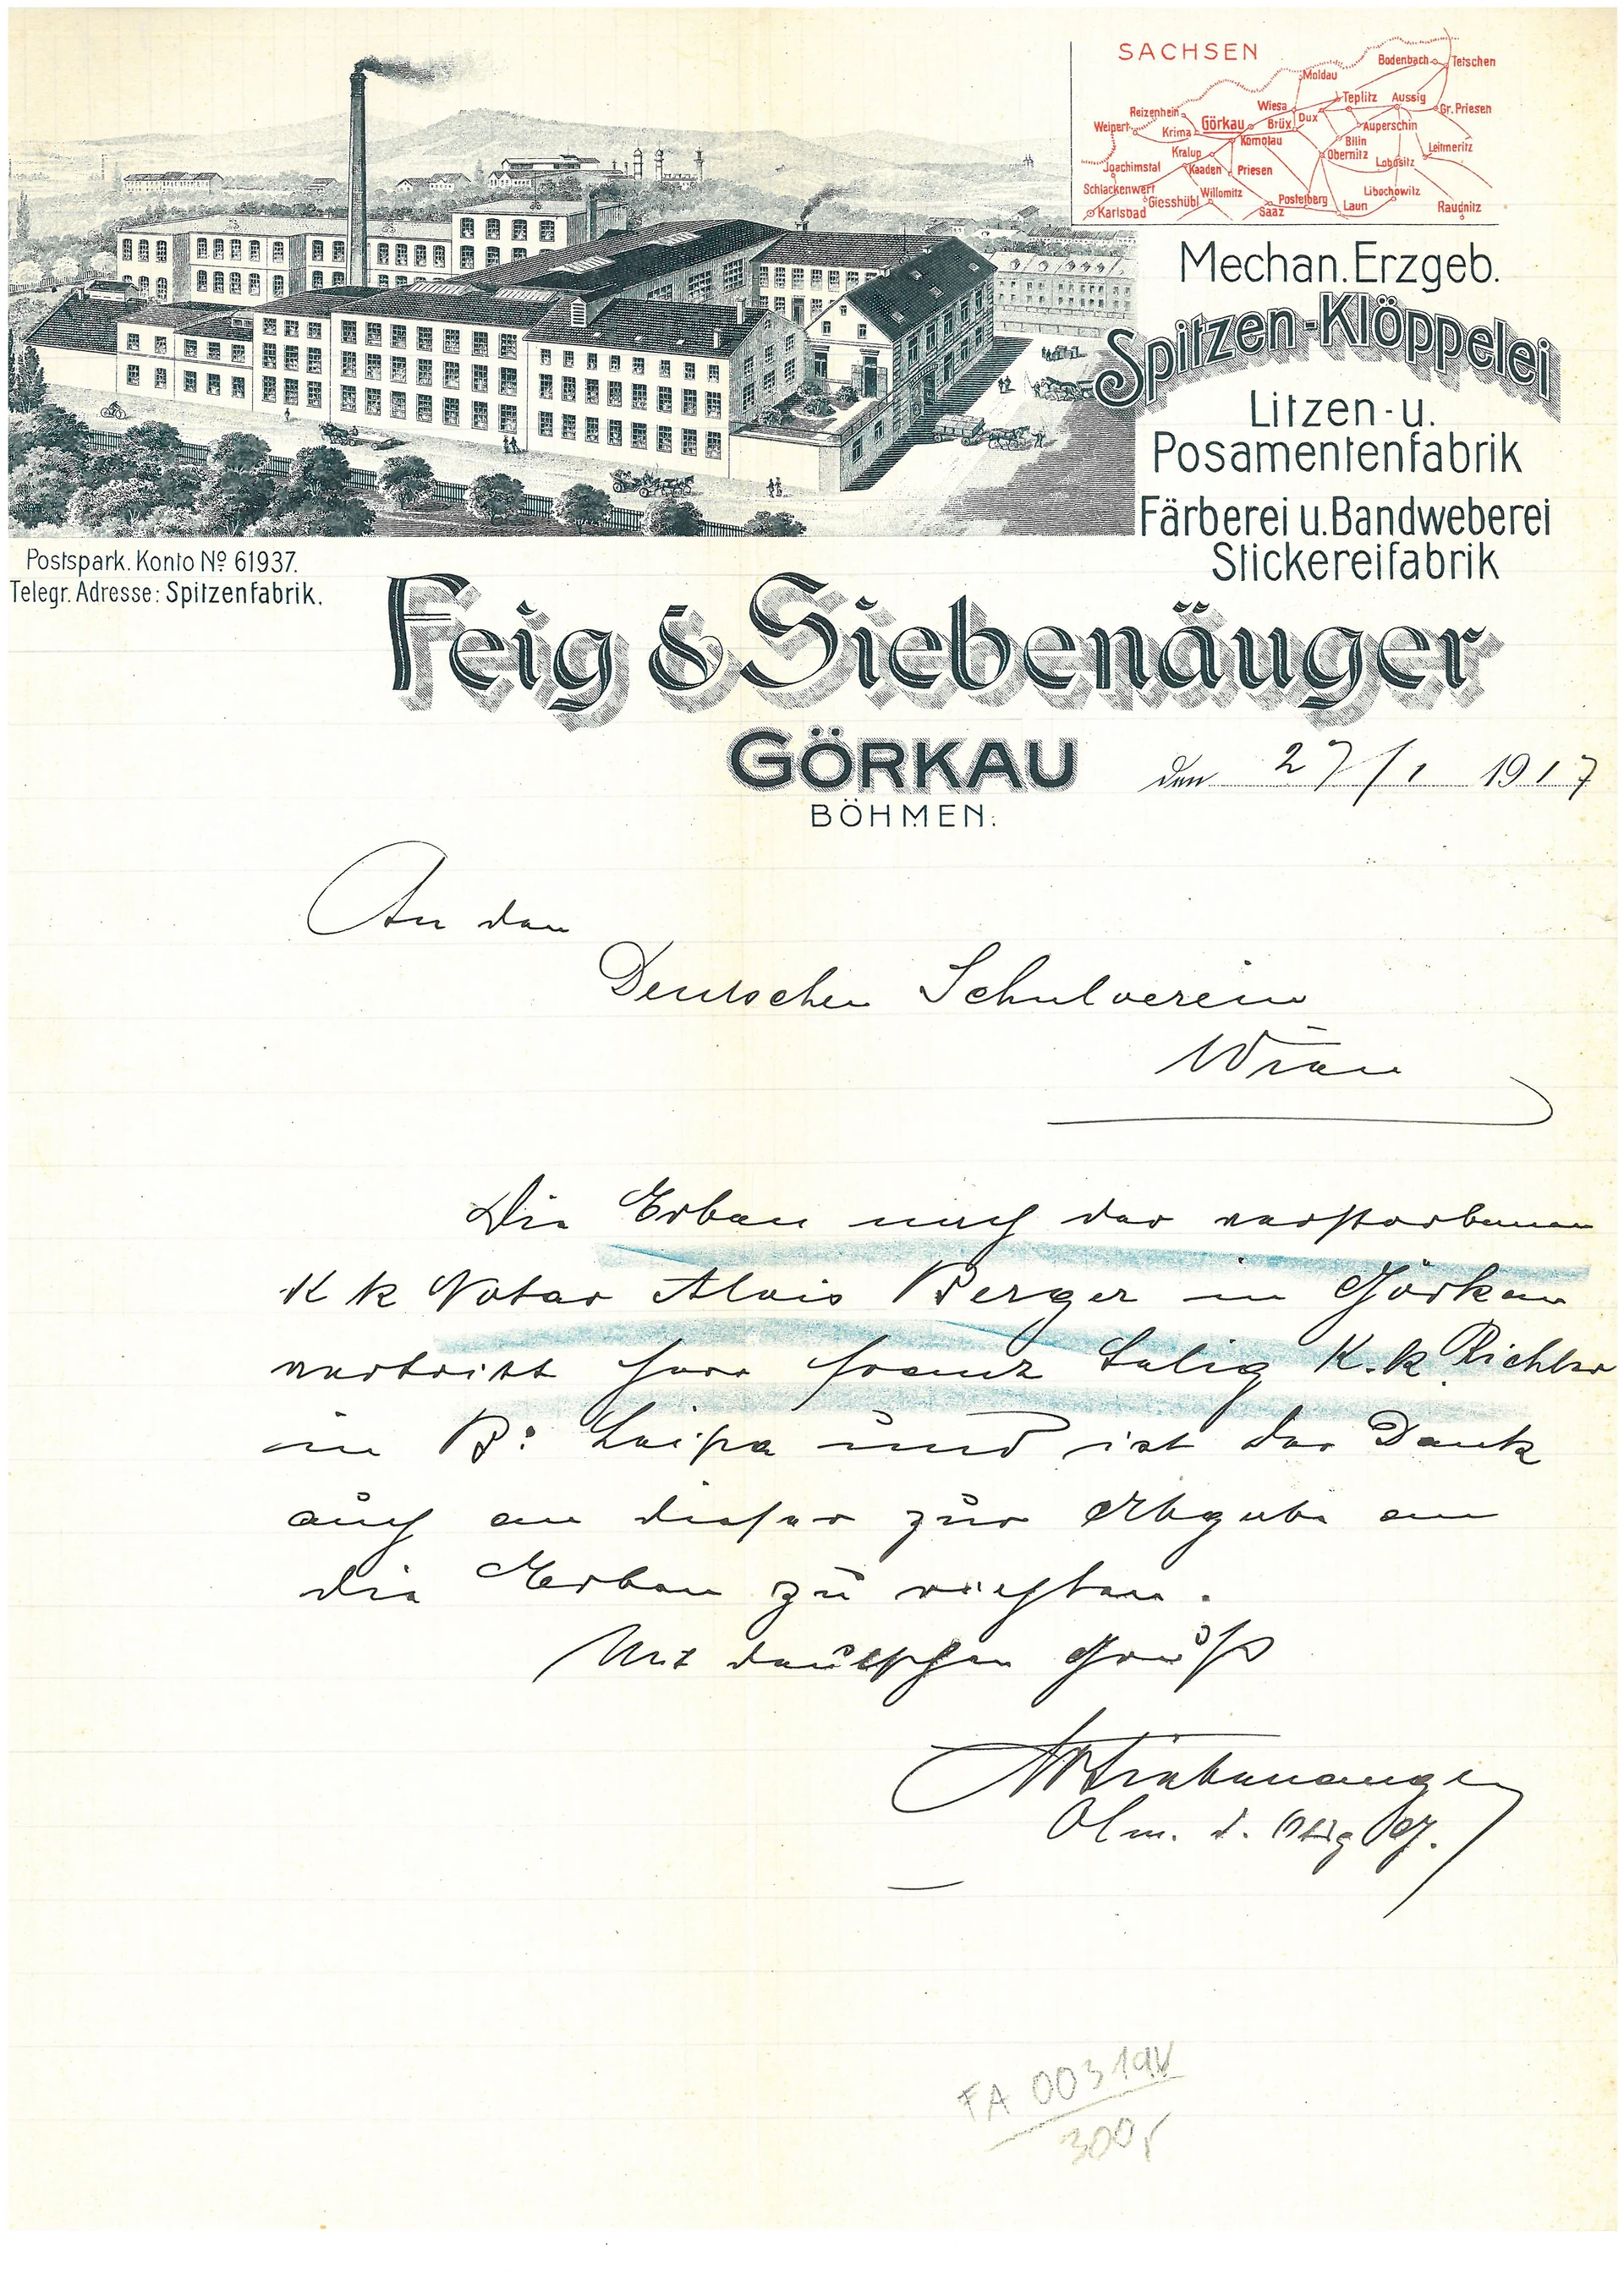 SACHSEN
Bodenbach
Tetschen
Moldau
Teplitz
Aussig
Wiesa
Gr. Priesen
Reizenhein
Dux
Weipert
Görkau
Brüx
Auperschin
Krima
Komotau
Bilin
Leitmeritz
Kralup
Obernitz
Lobositz
Joachimstal
Kaaden
Priesen
Schlackenwert
Willomitz
Libochowitz
Giesshübl
Postelberg
Karlsbad
Saaz
Laun
Raudnitz
Mechan. Erzgeb.
Spitzen-Klöppelei
Litzen- u.
Posamentenfabrik
Färberei u. Bandweberei
Stickereifabrik
Postspark. Konto № 61937.
Telegr. Adresse: Spitzenfabrik.
Feig & Siebenäuger
GÖRKAU
BÖHMEN.
den 27/1 1917
An den
Deutschen Schulverein
Wien
Die Erben nach der verstorbenen
K k Notar Alois Berger in Görkau
vertritt Herr Franz Salig K.k. Richter
in B: Leipa und ist der Dank
auch an dieser zur Abgabe an
die Erben zu richten.
Mit deutschen Gruß
Siebenäuger
Obm. d.
FA 00319
300